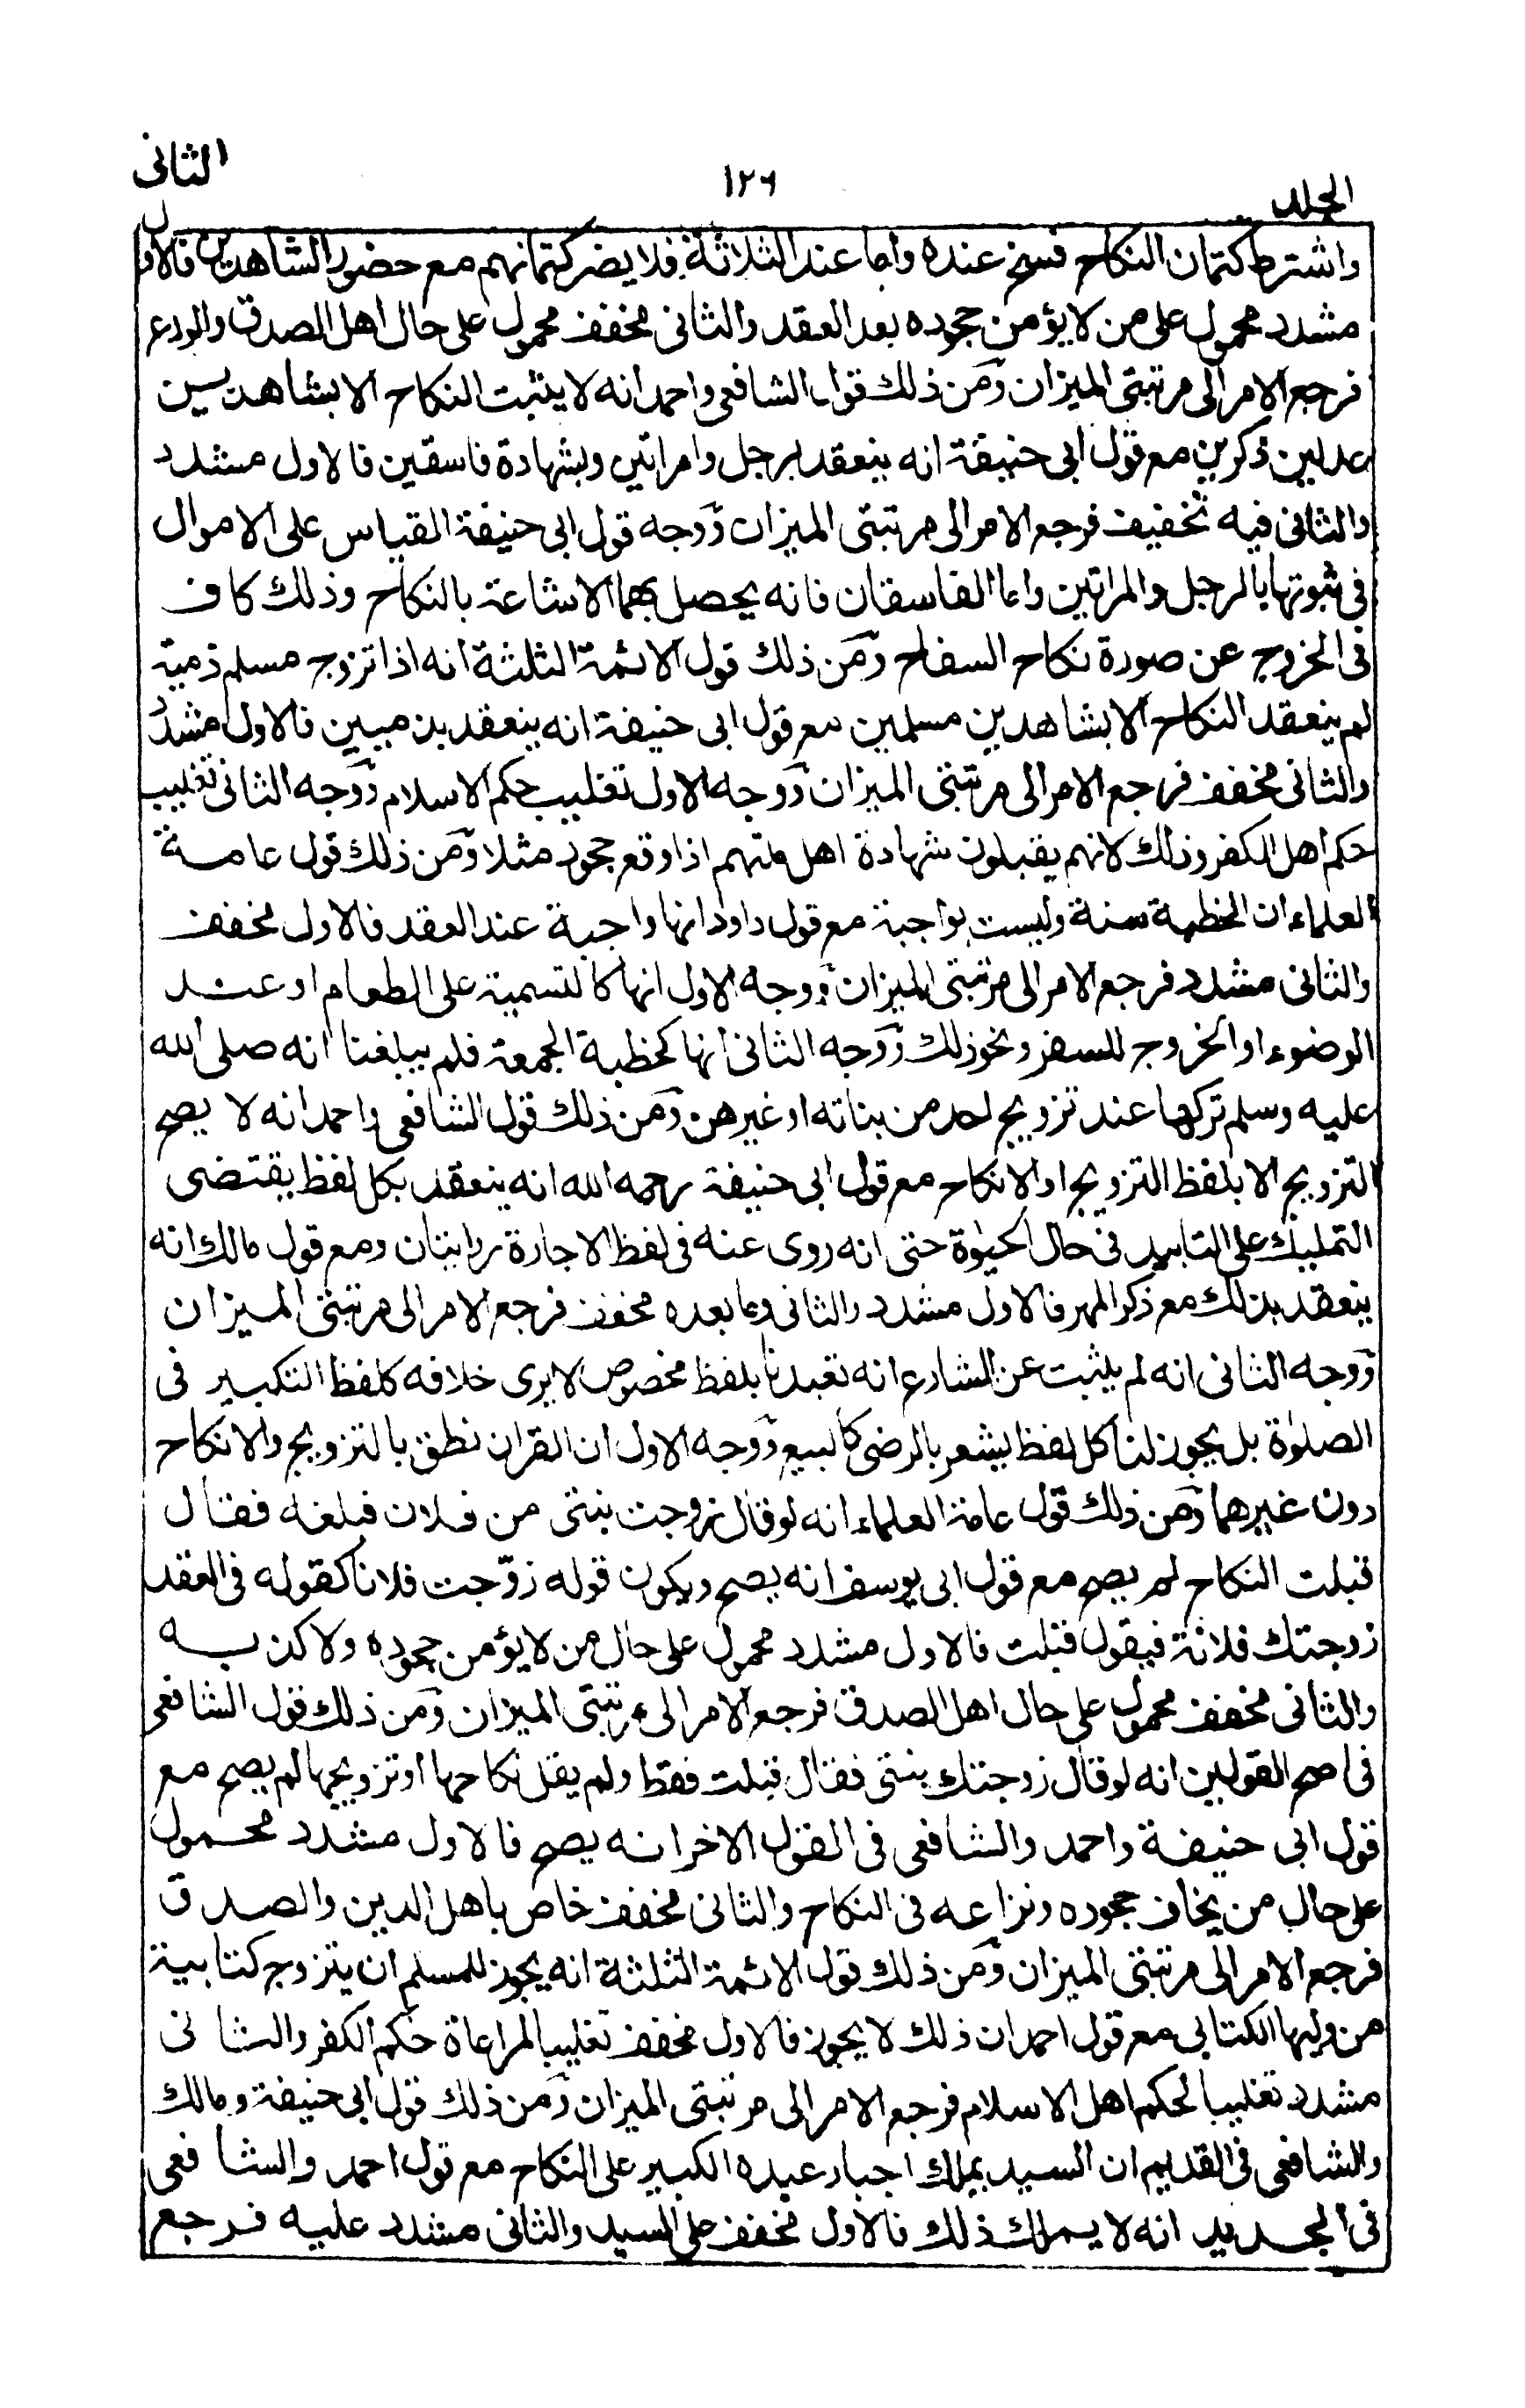 الجلد ١٢٦ الثانى
واشترط كتمان النكاح فسخ عنده واما عند الثلاثة فلا يضر كتمانهم مع حضور الشاهدين فالاول
مشدد محمول على من لا يؤمن جحوده بعد العقد والثانى مخفف محمول على حال اهل الصدق والورع
فرجع الامر الى مرتبتى الميزان ومن ذلك قول الشافعى واحمد انه لا يثبت النكاح الا بشاهدين
عدلين ذكرين مع قول ابى حنيفة انه ينعقد برجل وامراتين وبشهادة فاسقين فالاول مشدد
والثانى فيه تخفيف فرجع الامر الى مرتبتى الميزان ووجه قول ابى حنيفة القياس على الاموال
فى ثبوتها بالرجل والمراتين واما الفاسقان فانه يحصل بهما الاشاعة بالنكاح وذلك كاف
فى الخروج عن صورة نكاح السفاح ومن ذلك قول الائمة الثلثة انه اذا تزوج مسلم ذمية
لم ينعقد النكاح الا بشاهدين مسلمين مع قول ابى حنيفة انه ينعقد بذميين فالاول مشدد
والثانى مخفف فرجع الامر الى مرتبتى الميزان ووجه الاول تغليب حكم الاسلام ووجه الثانى تغليب
حكم اهل الكفر وذلك لانهم يقبلون شهادة اهل ملتهم اذا وقع جحود مثلا ومن ذلك قول عامة
العلماء ان الخطبة سنة وليست بواجبة مع قول داود انها واجبة عند العقد فالاول مخفف
والثانى مشدد فرجع الامر الى مرتبتى الميزان ووجه الاول انها كالتسمية على الطعام او عند
الوضوء او الخروج للسفر ونحو ذلك ووجه الثانى انها كخطبة الجمعة فلم يبلغنا انه صلى الله
عليه وسلم تركها عند تزويج احد من بناته او غيرهن ومن ذلك قول الشافعى واحمد انه لا يصح
التزويج الا بلفظ التزويج او الانكاح مع قول ابى حنيفة رحمه الله انه ينعقد بكل لفظ يقتضى
التمليك على التابيد فى حال الحيٰوة حتى انه روى عنه فى لفظ الاجارة روايتان ومع قول مالك انه
ينعقد بذلك مع ذكر المهر فالاول مشدد والثانى وما بعده مخفف فرجع الامر الى مرتبتى الميزان
ووجه الثانى انه لم يثبت عن الشارع انه تعبدنا بلفظ مخصوص لا يرى خلافه كلفظ التكبير فى
الصلوٰة بل يجوز لنا كل لفظ يشعر بالرضى كالبيع ووجه الاول ان القران نطق بالتزويج والانكاح
دون غيرهما ومن ذلك قول عامة العلماء انه لو قال زوجت بنتى من فلان فبلغه فقال
قبلت النكاح لم يصح مع قول ابى يوسف انه يصح ويكون قوله زوّجت فلانا كقوله فى العقد
زوجتك فلانة فيقول قبلت فالاول مشدد محمول على حال من لا يؤمن جحوده ولا كذبه
والثانى مخفف محمول على حال اهل الصدق فرجع الامر الى مرتبتى الميزان ومن ذلك قول الشافعى
فى اصح القولين انه لو قال زوجتك بنتى فقال قبلت فقط ولم يقل نكاحها او تزويجها لم يصح مع
قول ابى حنيفة واحمد والشافعى فى القول الاخر انه يصح فالاول مشدد محمول
على حال من يخاف جحوده ونزاعه فى النكاح والثانى مخفف خاص باهل الدين والصدق
فرجع الامر الى مرتبتى الميزان ومن ذلك قول الائمة الثلثة انه يجوز للمسلم ان يتزوج كتابية
من وليها الكتابى مع قول احمد ان ذلك لا يجوز فالاول مخفف تغليبا لمراعاة حكم الكفر والثانى
مشدد تغليبا لحكم اهل الاسلام فرجع الامر الى مرتبتى الميزان ومن ذلك قول ابى حنيفة ومالك
والشافعى فى القديم ان السيد يملك اجبار عبده الكبير على النكاح مع قول احمد والشافعى
فى الجديد انه لا يملك ذلك فالاول مخفف على السيد والثانى مشدد عليه فرجع